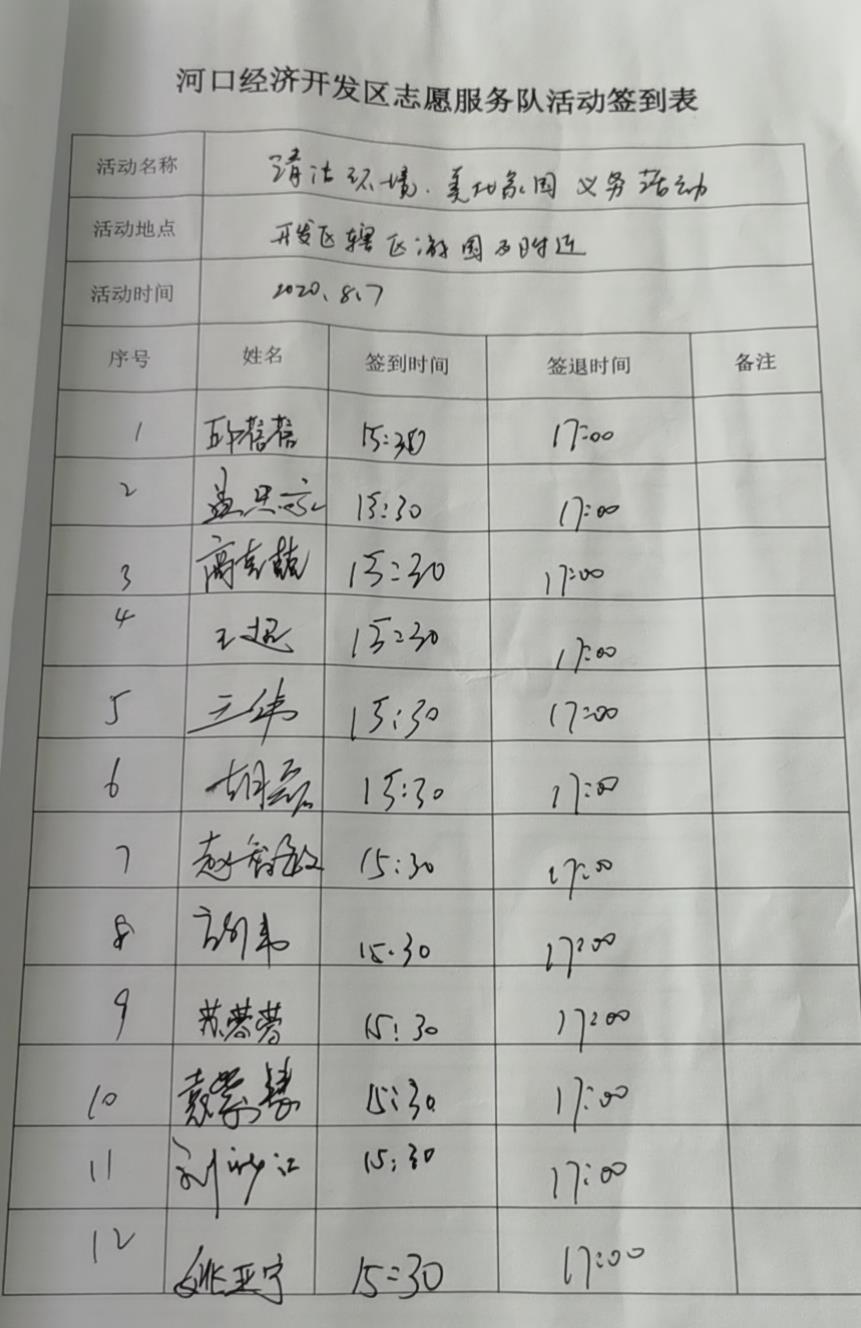 河口经济开发区志愿服务队活动签到表
活动名称 清洁环境.美化家园 义务活动
活动地点 开发区辖区游园及附近
活动时间 2020、8、7
序号 姓名 签到时间 签退时间 备注
1 15:30 17:00
2 15:30 17:00
3 15:30 17:00
4 王超 15:30 17:00
5 王伟 15:30 17:00
6 胡磊 15:30 17:00
7 15:30 17:00
8 15:30 17:00
9 苏蓉蓉 15:30 17:00
10 15:30 17:00
11 15:30 17:00
12 姚亚宁 15:30 17:00